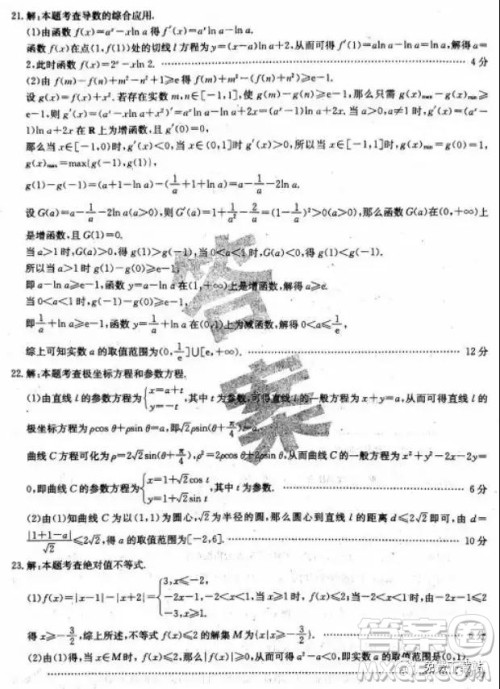 21.解:本题考查导数的综合应用.
(1)由函数 f(x)=aˣ-xln a 得 f'(x)=aˣln a-ln a.
函数 f(x)在点(1,f(1))处的切线 l 方程为 y=(x-a)ln a+a,从而可得 f'(1)=aln a-ln a=ln a,解得 a=
2,此时函数 f(x)=2ˣ-xln 2. 4 分
(2)由 f(m)-f(n)+m²-n²+1≥e 得 f(m)+m²-f(n)-n²≥e-1.
设 g(x)=f(x)+x². 若存在实数 m,n∈[-1,1],使 g(m)-g(n)≥e-1,则只需函数 g(x)max-g(x)min≥
e-1,则 g'(x)=(aˣ-xln a+x²)'=aˣln a-ln a+2x=(aˣ-1)ln a+2x. 当 a>0,a≠1 时,g'(x)=(aˣ-
1)ln a+2x 在 R 上为增函数,且 g'(0)=0.
那么当 x∈[-1,0)时,g'(x)<0,当 x∈(0,1]时 g'(x)>0,从而可得当 x∈[-1,1]时,g(x)min=g(0)=1,
g(x)max=max{g(-1),g(1)},
g(1)-g(-1)=(a+1-ln a)-(1/a+1+ln a)=a-1/a-2ln a.
设 G(a)=a-1/a-2ln a(a>0),则 G'(a)=1+1/a²-2/a=(1-1/a)²>0(a>0),从而可得函数 G(a)在(0,+∞)上
是增函数,且 G(1)=0.
当 a>1 时,G(a)>0,得 g(1)>g(-1);当 0<a<1 时,G(a)<0,得 g(1)<g(-1).
所以当 a>1 时,g(1)-g(0)≥e-1.
即 a-ln a≥e-1,函数 y=a-ln a 在(1,+∞)上是增函数,解得 a≥e.
当 0<a<1 时,g(-1)-g(0)≥e-1,
即1/a+ln a≥e-1,函数 y=1/a+ln a 在(0,1)上为减函数,解得 0<a≤1/e.
综上可知实数 a 的取值范围为(0,1/e]∪[e,+∞). 12 分
22.解:本题考查极坐标方程和参数方程.
(1)由直线 l 的参数方程为{x=a+t, y=-t,其中 t 为参数,可得直线 l 的一般方程为 x+y=a,从而可得直线 l 的
极坐标方程为 ρcos θ+ρsin θ=a.
曲线 C 方程可化为 ρ=2√2sin(θ+π/4),即 ρ²=2√2ρsin(θ+π/4)=2ρcos θ+2ρsin θ,从而曲线 C 的一般方程为 x²+y²-2x-2y=
0,即曲线 C 的参数方程为{x=1+√2cos t, y=1+√2sin t,其中 t 为参数. 6 分
(2)由(1)知曲线 C 为以(1,1)为圆心,√2 为半径的圆,那么圆心到直线 l 的距离 d≤2√2,由 d=
|1+1-a|/√2≤2√2,得 a 的取值范围为[-2,6]. 10 分
23.解:本题考查绝对值不等式.
(1)f(x)=|x-1|-|x+2|={3,x≤-2, -2x-1,-2<x<1, -3,x≥1. 当 x≤-2 时,f(x)>2;当-2<x<1 时,由-2x-1≤2
得 x≥-3/2,综上所述,不等式 f(x)≤2 的解集 M 为{x|x≥-3/2}.
答案
答案圈
MXQE.COM